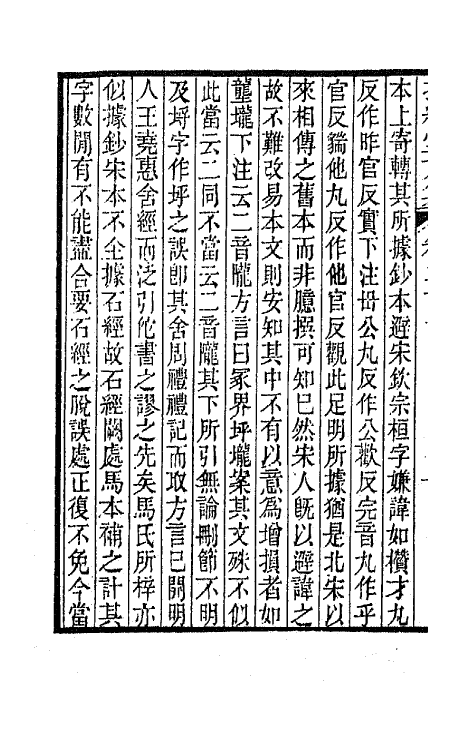 本上寄轉其所據鈔本避宋欽宗桓字嫌諱如欑才九
反作昨官反實下注毌公丸反作公歡反完音丸作乎
官反貒他丸反作他官反觀此足明所據猶是北宋以
來相傳之舊本而非臆撰可知巳然宋人旣以避諱之
故不難改易本文則安知其中不有以意爲增損者如
壟壠下注云二音隴方言曰冢界埒壠案其文殊不似
此當云二同不當云二音隴其下所引無論刪節不明
及埒字作垀之誤卽其舍周禮禮記而取方言巳開明
人王堯惠舍經而泛引他書之謬之先矣馬氏所梓亦
似據鈔宋本不全據石經故石經闕處馬本補之計其
字數閒有不能盡合要石經之脫誤處正復不免今當